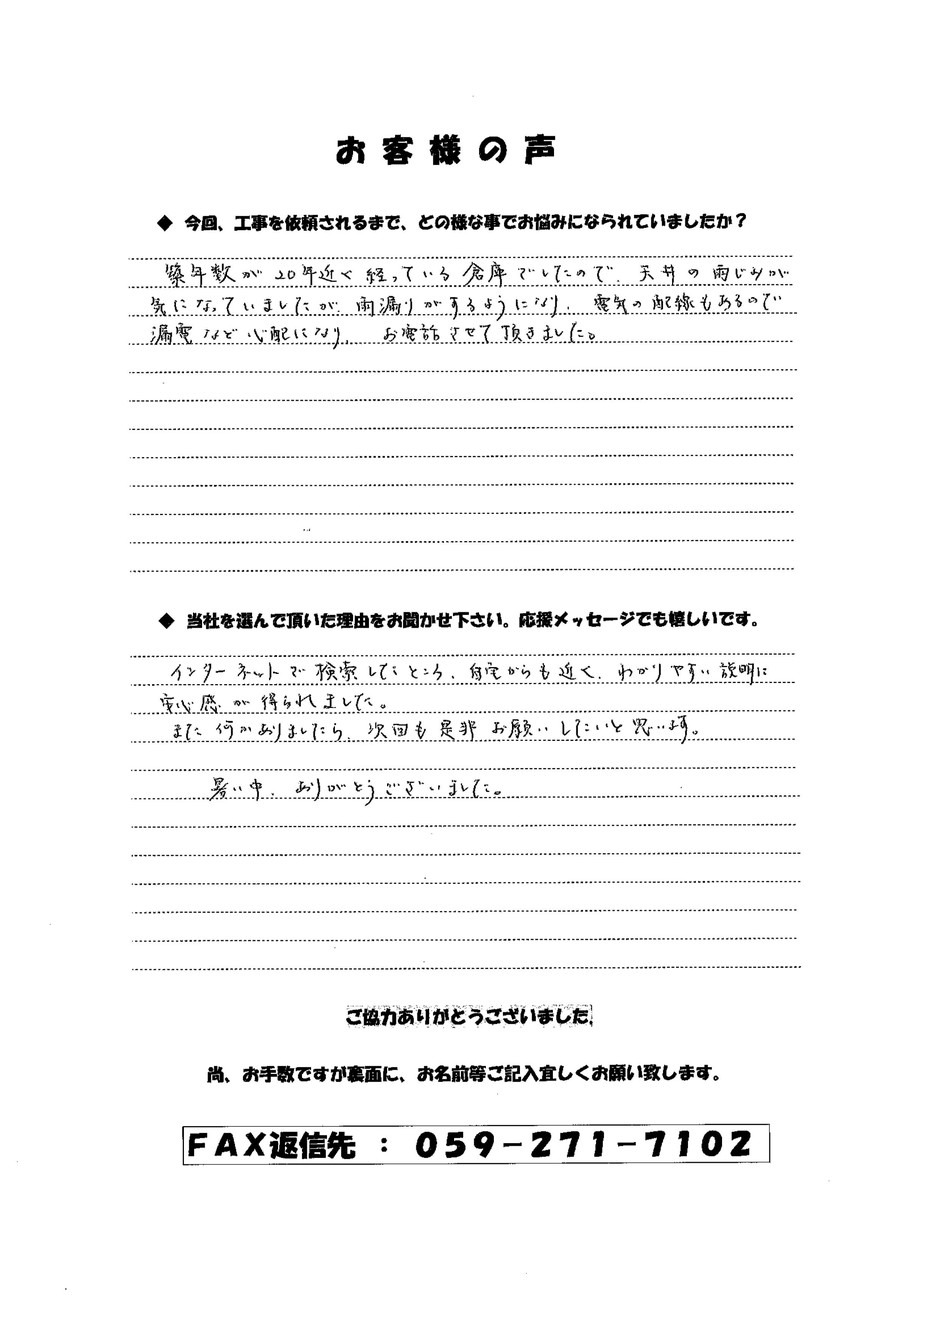 お客様の声
◆ 今回、工事を依頼されるまで、どの様な事でお悩みになられていましたか？
築年数が20年近く経っている倉庫でしたので、天井の雨じみが
気になっていましたが、雨漏りがするようになり、電気の配線もあるので
漏電など心配になり、お電話させて頂きました。
◆ 当社を選んで頂いた理由をお聞かせ下さい。応援メッセージでも嬉しいです。
インターネットで検索したところ、自宅からも近く、わかりやすい説明に
安心感が得られました。
また何かありましたら、次回も是非お願いしたいと思います。
暑い中、ありがとうございました。
ご協力ありがとうございました。
尚、お手数ですが裏面に、お名前等ご記入宜しくお願い致します。
ＦＡＸ返信先 ： ０５９－２７１－７１０２